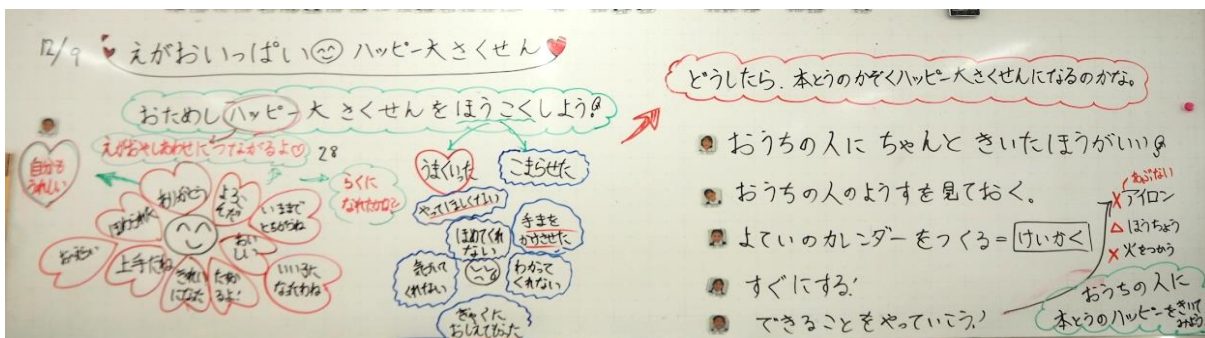 12/9 えがおいっぱい ハッピー大さくせん
おためしハッピー大さくせんをほうこくしよう!
えがおやしあわせにつながるよ
28
自分も
うれしい
らくに
なれたかな?
ありがとう
よろこんだ
いままで
とちがうね
おいしい
いい子に
なったわね
たすかるよ!
きれいになった
上手だね
ほめられた
うまくいった
こまらせた
やってほしくない
手まを
かけさせた
ほめてくれない
わかって
くれない
気づいて
くれない
ぎゃくに
おしえてもらった
どうしたら、本とうのかぞくハッピー大さくせんになるのかな。
おうちの人にちゃんときいたほうがいい
おうちの人のようすを見ておく。
よていのカレンダーをつくる=けいかく
すぐにする!
できることをやっていこう!
あぶない
×アイロン
△ほうちょう
×火をつかう
おうちの人に
本とうのハッピーをきいて
みよう